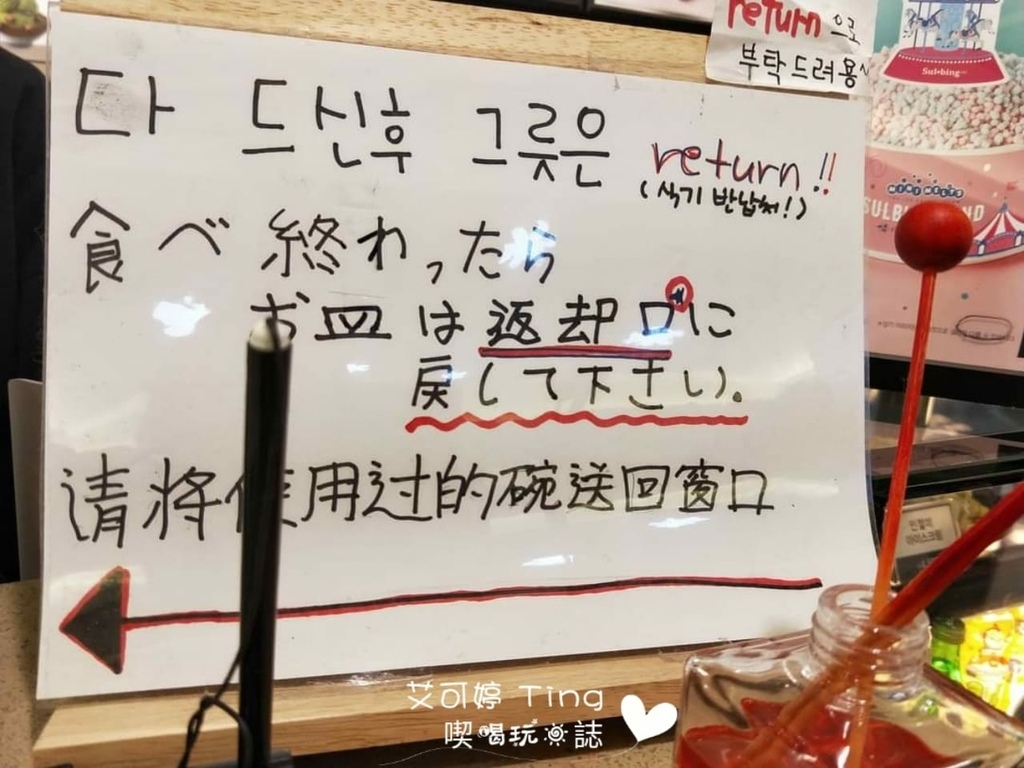 return 으로
부탁드려용
Sul•bing
다 드신후 그릇은 return!!
(식기 반납처!)
食べ終わったら
お皿は返却口に
戻して下さい。
请将使用过的碗送回窗口
MINI MELTS
艾可婷 Ting
喫喝玩誌